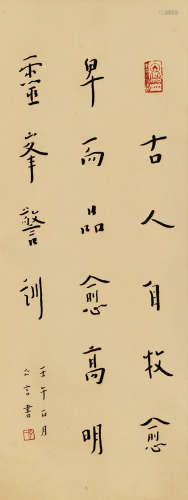 古人自牧愈
卑而品愈高明
靈峯警訓
壬午六月
亡言書